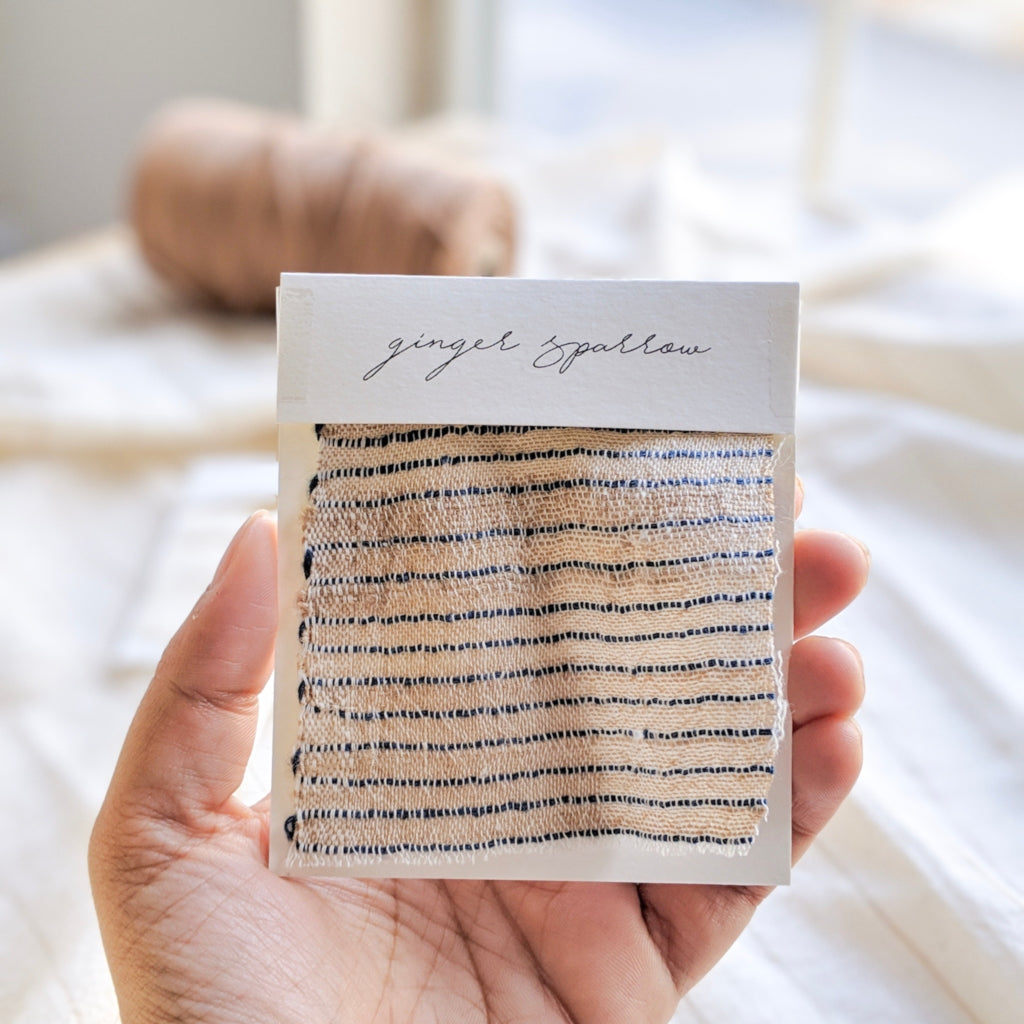 ginger sparrow